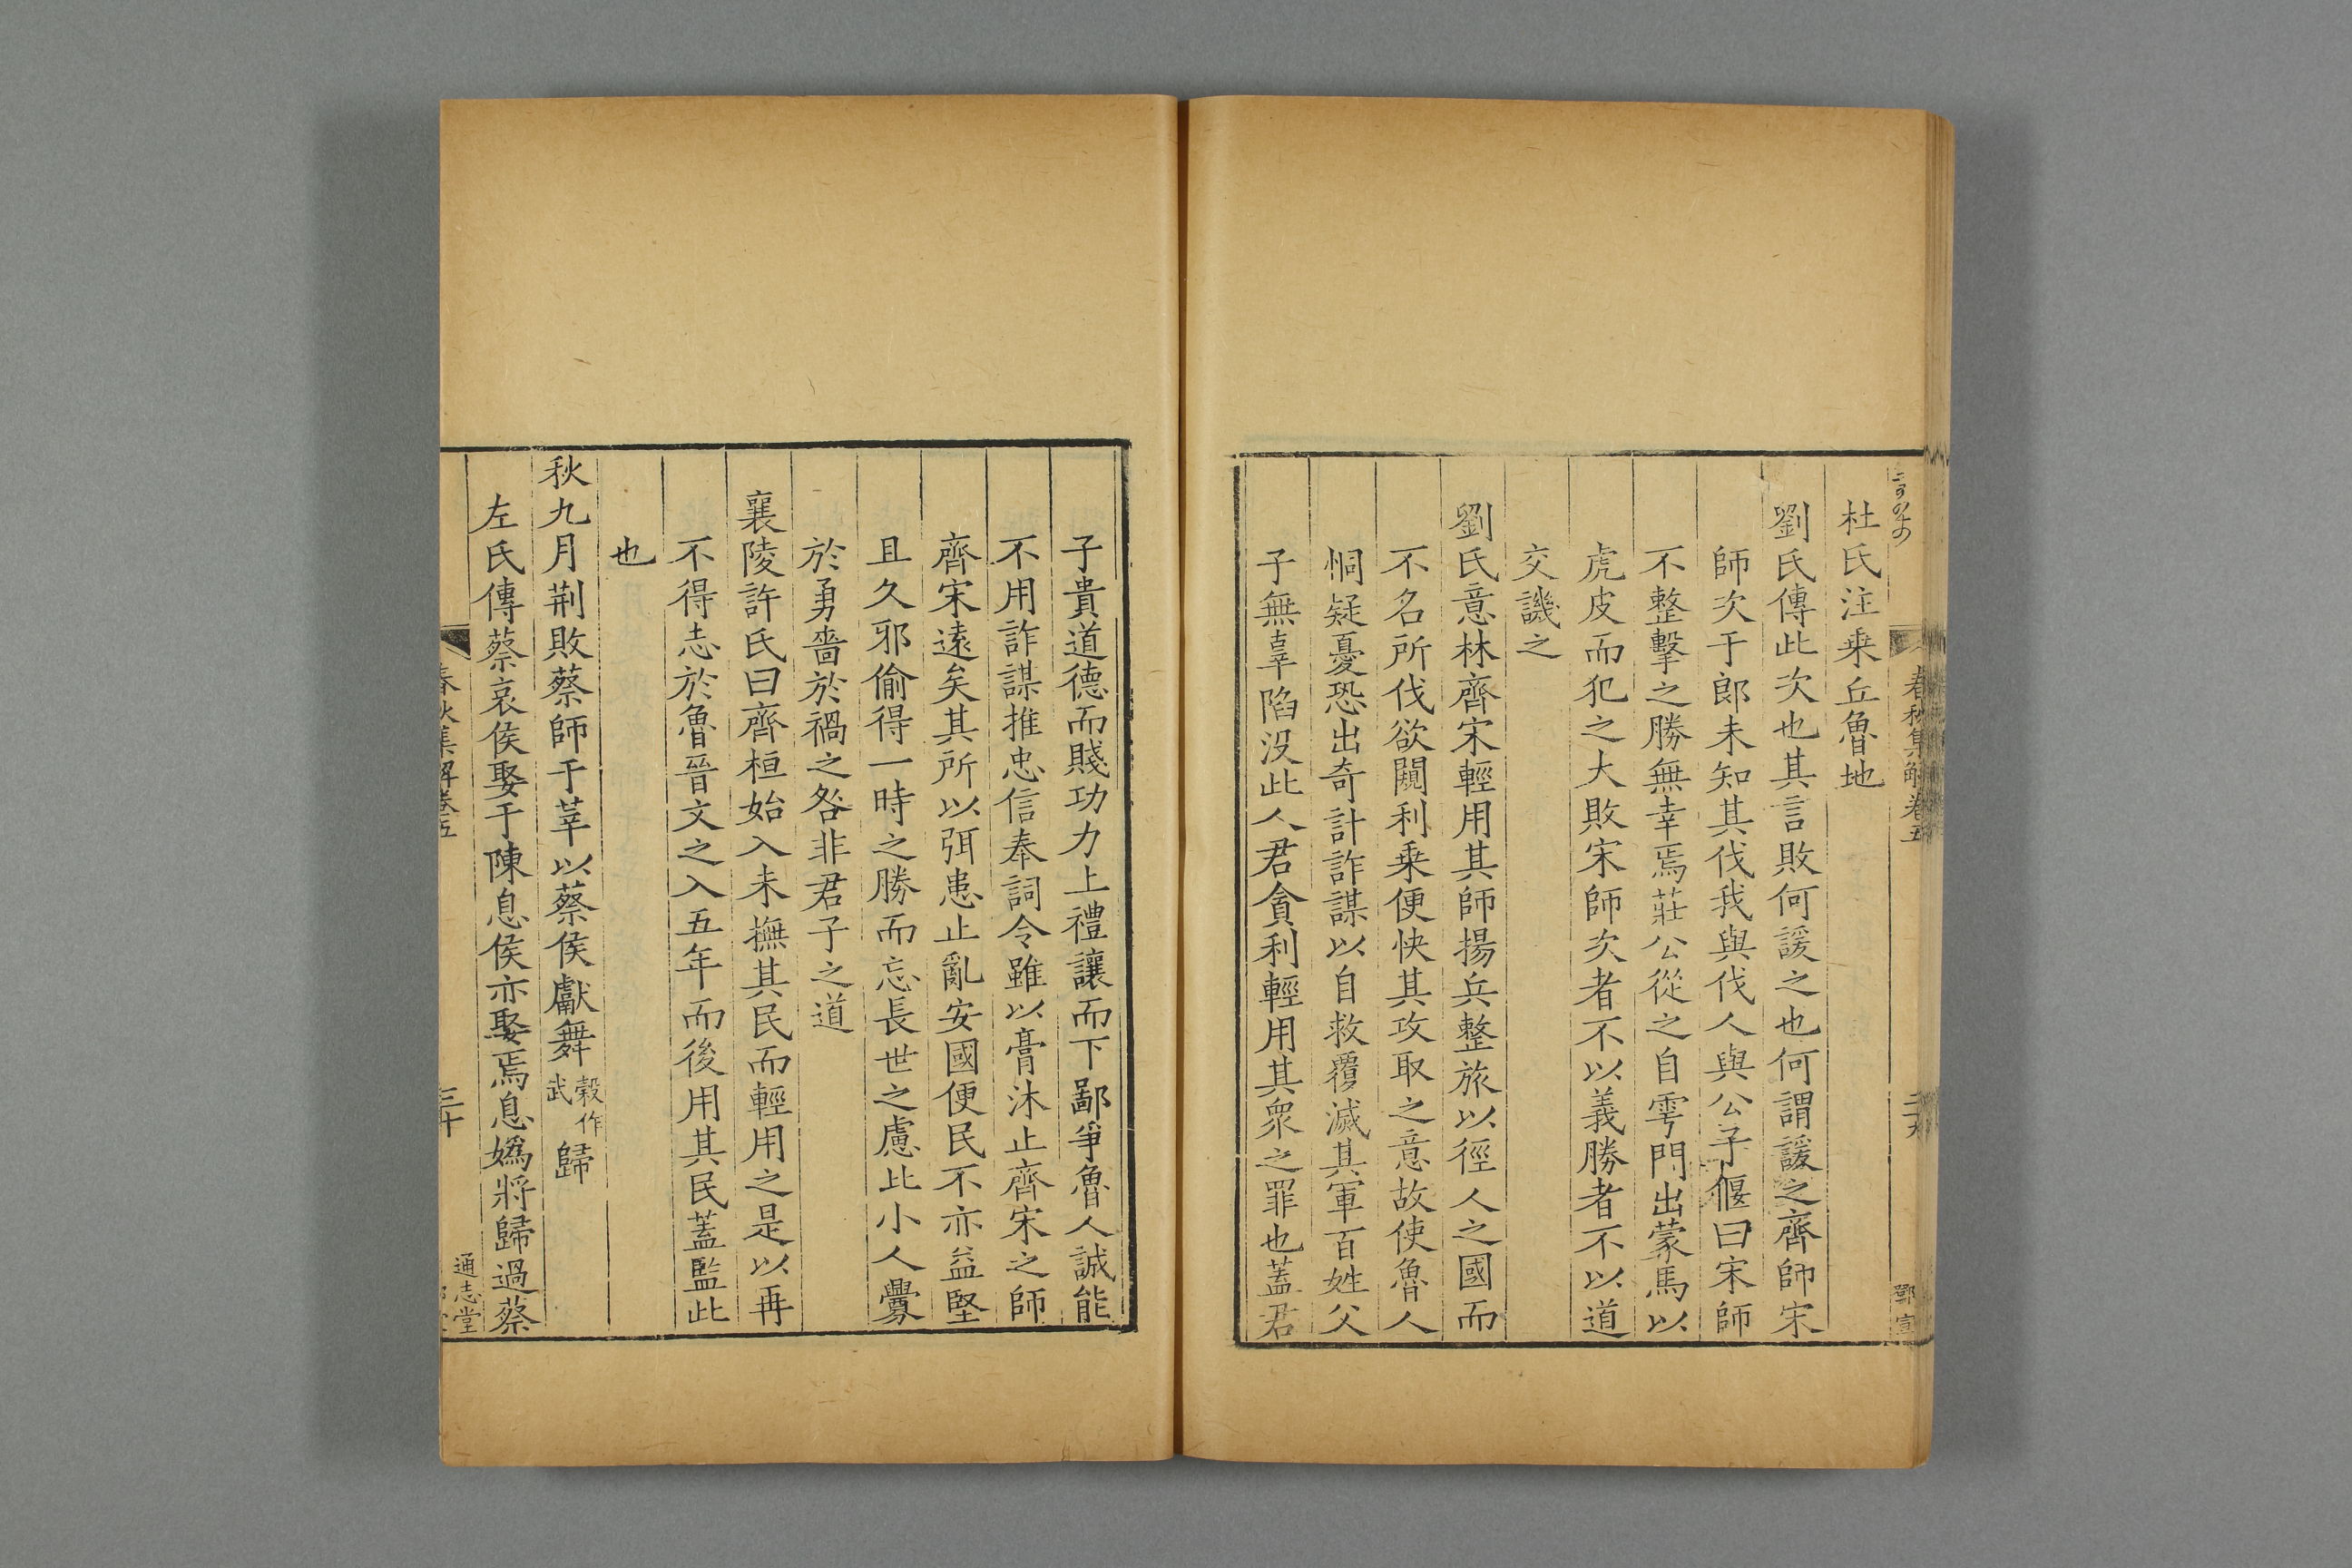 春秋集解卷五
二十九
鄧宣
杜氏注乗丘魯地
劉氏傳此次也其言敗何諼之也何謂諼之齊師宋
師次于郎未知其伐我與伐人與公子偃曰宋師
不整擊之勝無幸焉莊公從之自雩門出蒙馬以
虎皮而犯之大敗宋師次者不以義勝者不以道
交譏之
劉氏意林齊宋輕用其師揚兵整旅以徑人之國而
不名所伐欲闚利乗便快其攻取之意故使魯人
恫疑憂恐出奇計詐謀以自救覆滅其軍百姓父
子無辜陷沒此人君貪利輕用其衆之罪也蓋君
子貴道德而賤功力上禮讓而下鄙爭魯人誠能
不用詐謀推忠信奉詞令雖以膏沐止齊宋之師
齊宋遠矣其所以弭患止亂安國便民不亦益堅
且久邪偷得一時之勝而忘長世之慮比小人釁
於勇嗇於禍之咎非君子之道
襄陵許氏曰齊桓始入未撫其民而輕用之是以再
不得志於魯晉文之入五年而後用其民蓋監此
也
秋九月荆敗蔡師于莘以蔡侯獻舞穀作武歸
左氏傳蔡哀侯娶于陳息侯亦娶焉息嬀將歸過蔡
春秋集解卷五
三十
通志堂